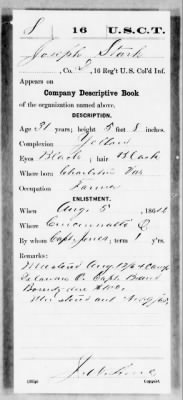 S 16 U.S.C.T.
Joseph Stark
, Co. D, 16 Reg't U.S. Col'd Inf.
Appears on
Company Descriptive Book
of the organization named above.
DESCRIPTION.
Age 31 years; height 5 feet 8 inches.
Complexion Yellow
Eyes Black; hair Black
Where born Charlston Va
Occupation Farmer
ENLISTMENT.
When Aug. 5, 1864
Where Cincinnati O.
By whom Capt. Jones; term 1 y'rs.
Remarks:
Mustered Aug. Camp
Delaware O. Capt.
Bounty due
Mustered out
Copyist.